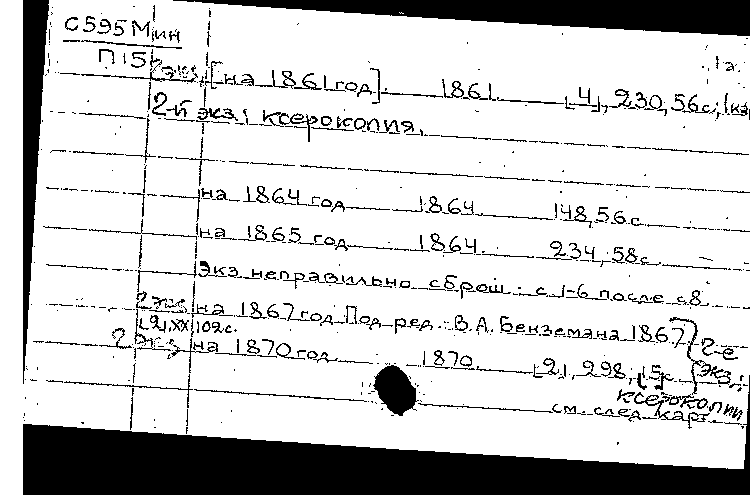 С595Мин
П15
1а.
2экз. [на 1861 год]. 1861. [4], 230, 56с.; (кз
2-й экз: ксерокопия.
на 1864 год 1864. 148, 56с.
на 1865 год 1864. 234, 58с.
Экз. неправильно сброш.: с 1-6 после с8.
2 экз на 1867 год. Под ред.: В.А. Бенземана 1867
[2], XX, 102с.
2 экз на 1870 год. 1870. [2], 298, [5]с. 2-е экз:
ксерокопии
см. след. карт.